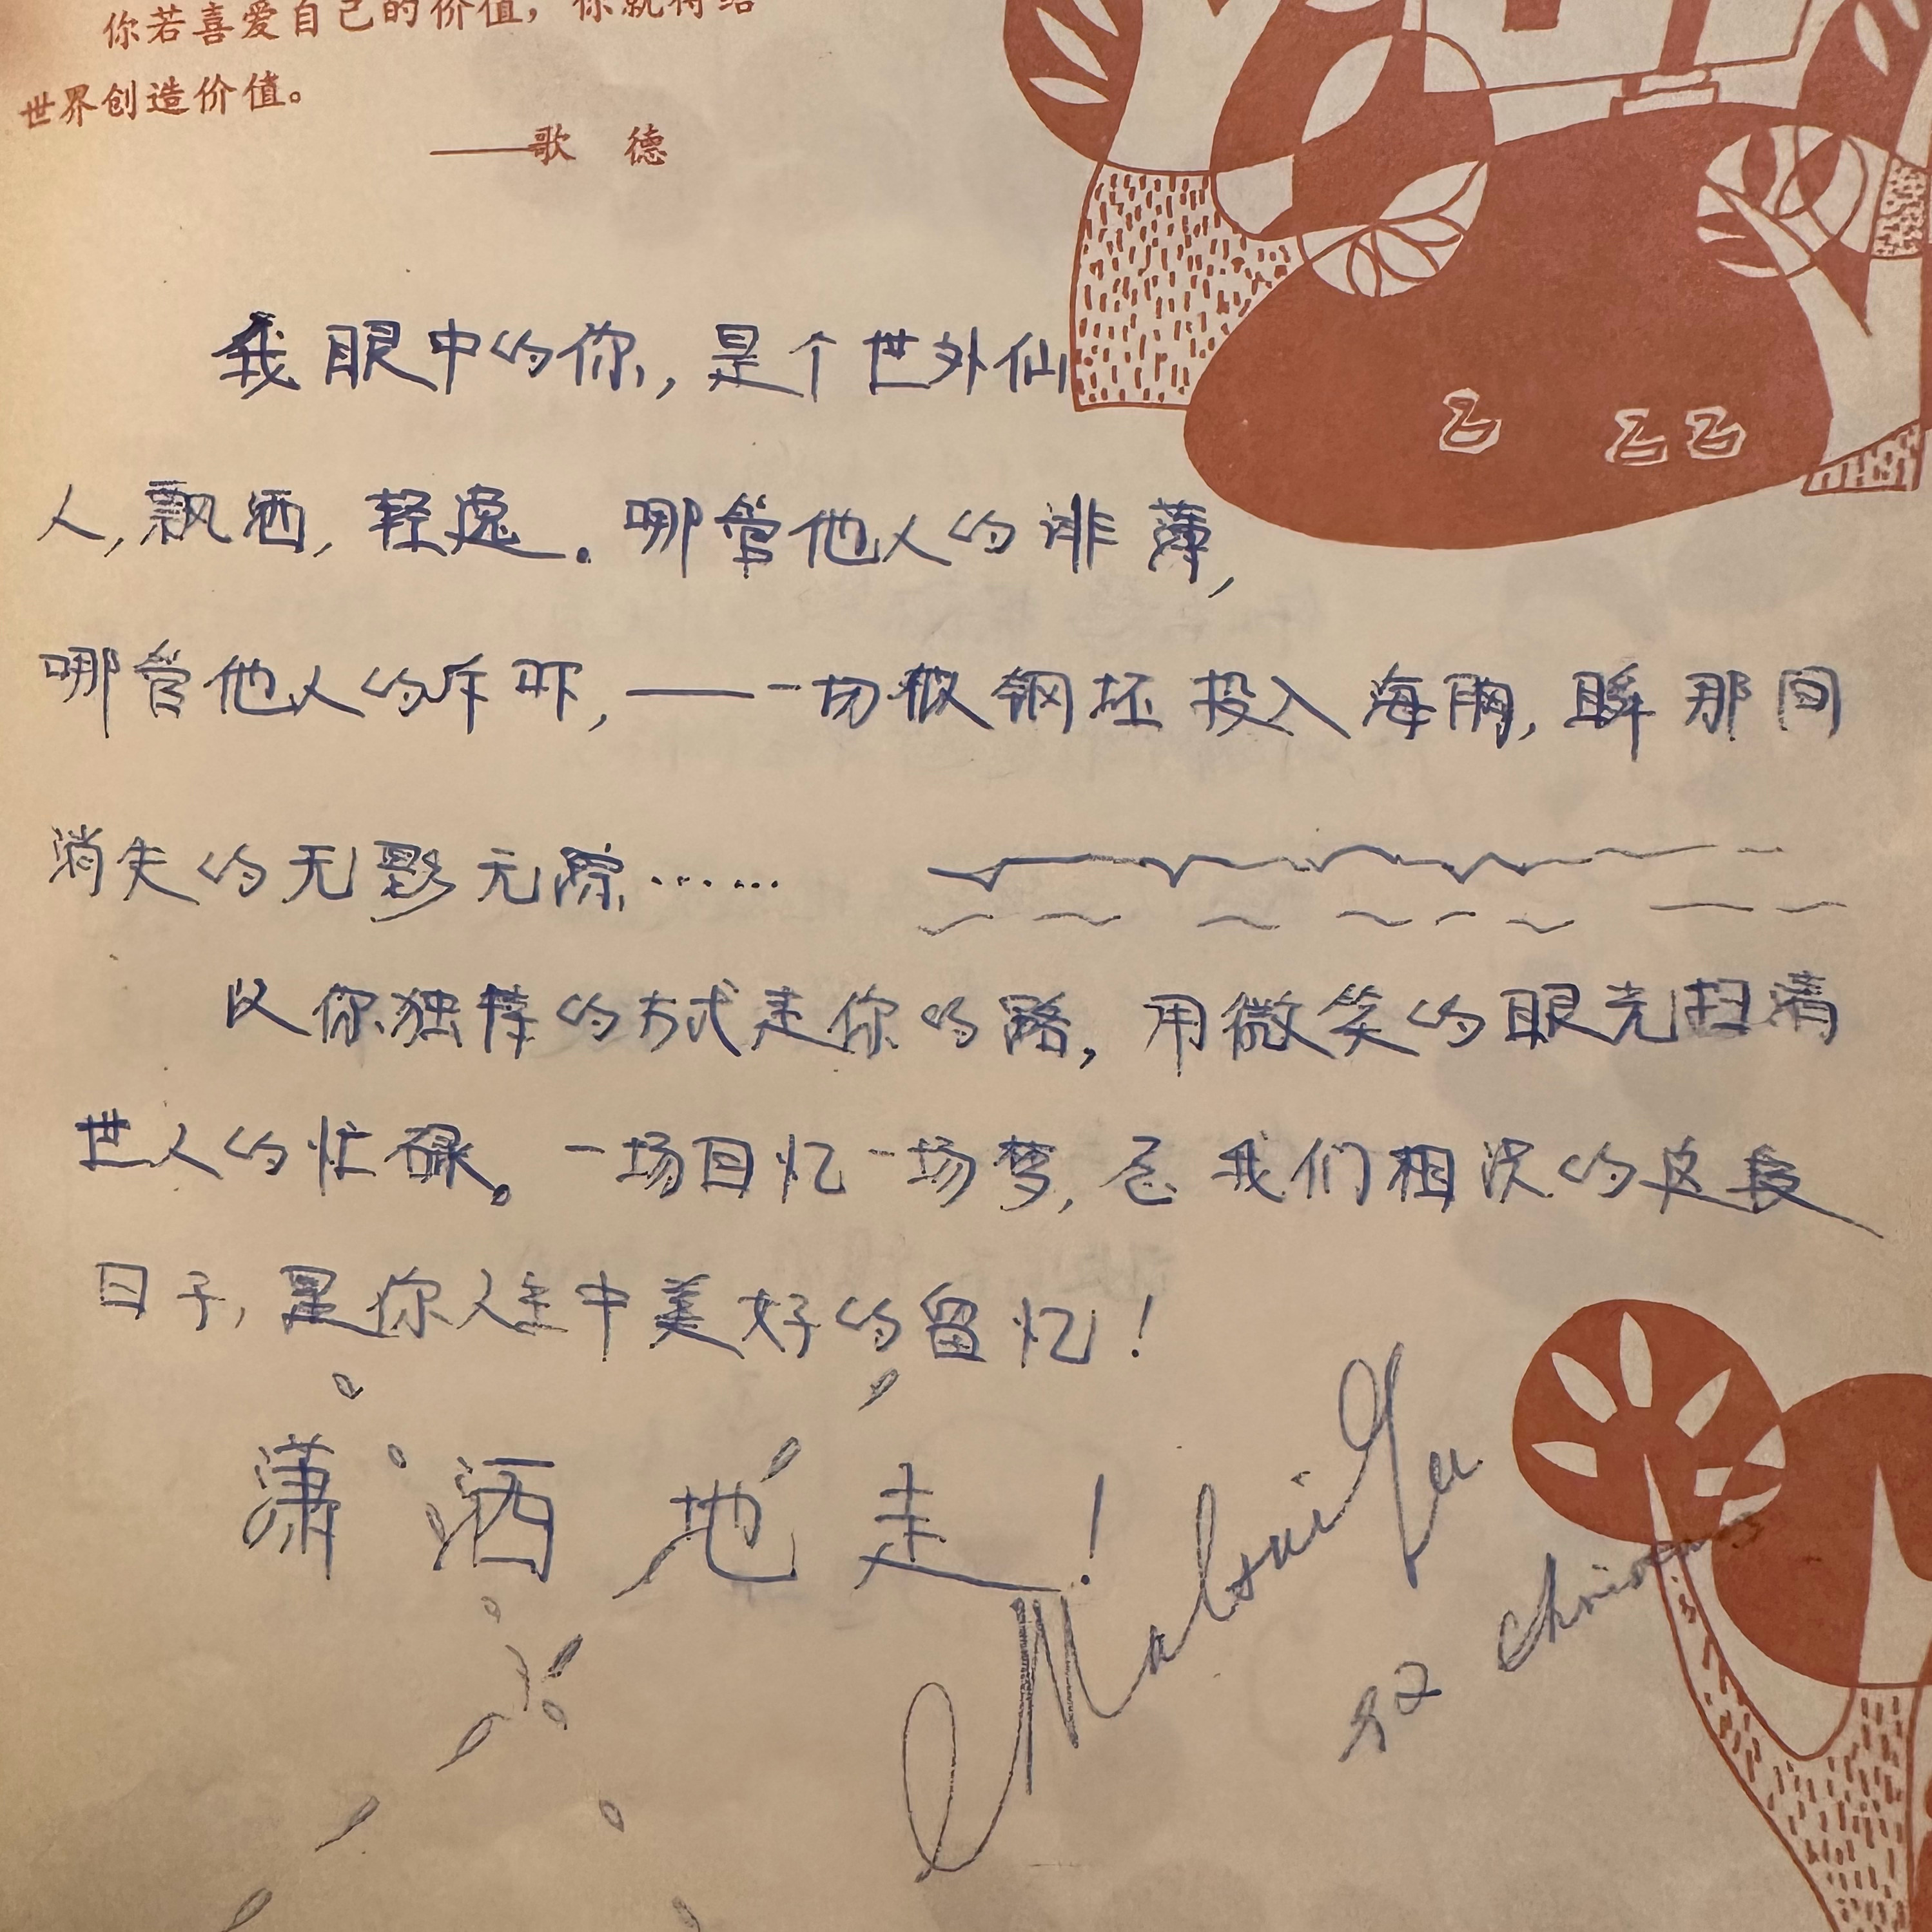 你若喜爱自己的价值，你就得给
世界创造价值。
——歌 德
我眼中的你，是个世外仙
人，飘洒，轻逸。哪管他人的诽薄，
哪管他人的斥吓，——一切被钢坯投入海胸，瞬那间
消失的无影无踪……
以你独特的方式走你的路，用微笑的眼光扫清
世人的忙碌。一场回忆一场梦，愿我们相识的这段
日子，是你人生中美好的留忆！
潇洒地走！
92